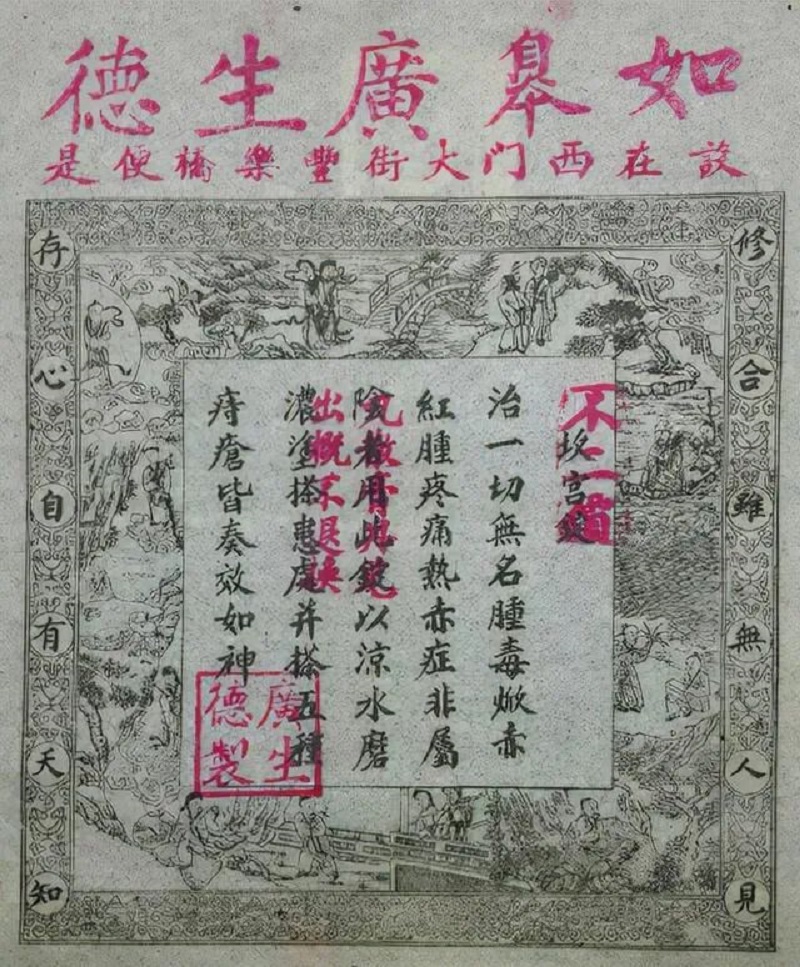 如皋廣生德
設在西门大街豐樂橋便是
修合雖無人見
存心自有天知
不二價
坎宫錠
治一切無名腫毒焮赤
紅腫疼痛熱赤症非屬
陰者用此錠以涼水磨
濃塗搽患處并搽五種
痔瘡皆奏效如神
丸散膏丹
出概不退换
廣生德製